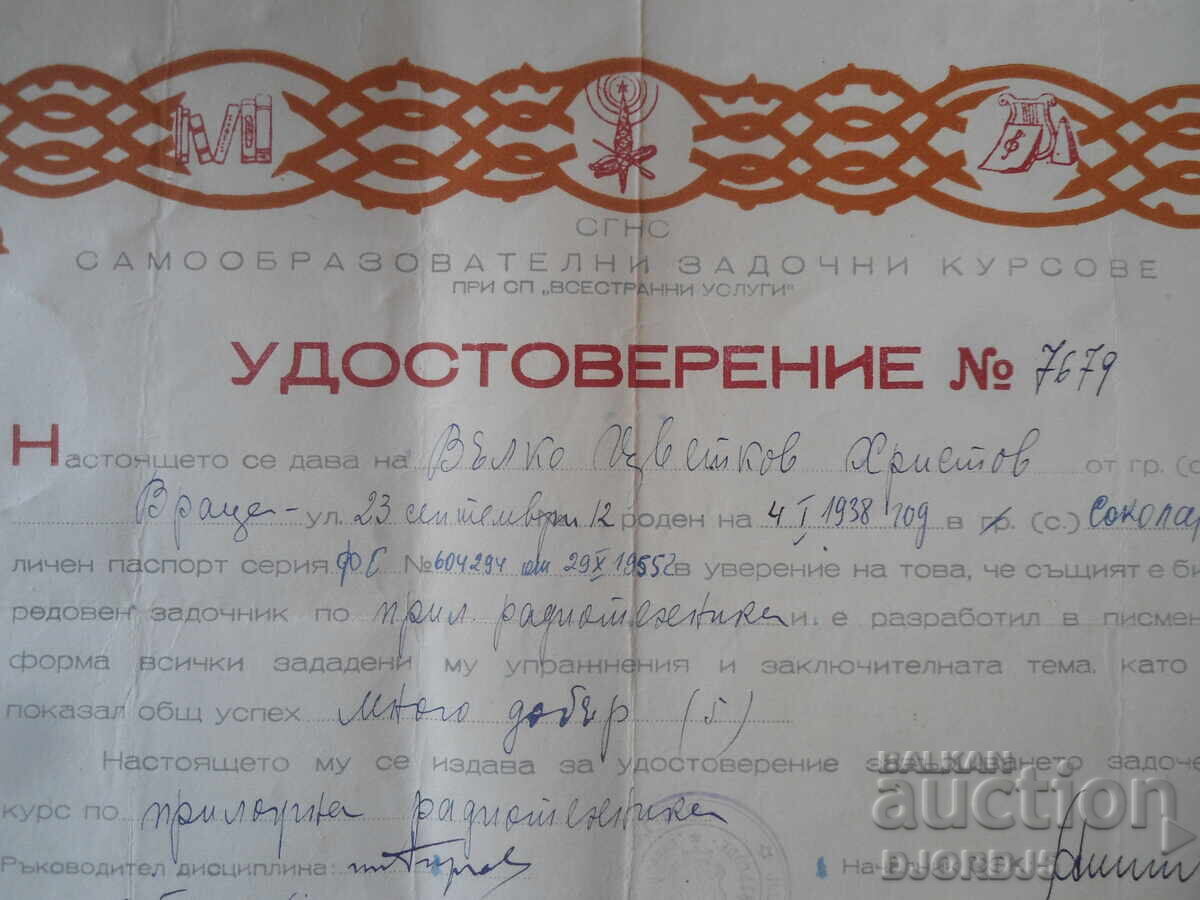 СГНС
САМООБРАЗОВАТЕЛНИ ЗАДОЧНИ КУРСОВЕ
ПРИ СП „ВСЕСТРАННИ УСЛУГИ"
УДОСТОВЕРЕНИЕ № 7679
Настоящето се дава на Вълко Цветков Христов от гр. (с
Враца - ул. 23 септември 12 роден на 4 I 1938 год в гр. (с.) Соколар
личен паспорт серия ФЕ № 604294 от 29 X 1955 г в уверение на това, че същият е би
редовен задочник по прил. радиотехника и е разработил в писмен
форма всички зададени му упражнения и заключителната тема като
показал общ успех много добър (5)
Настоящето му се издава за удостоверение завършването задоче
курс по приложна радиотехника
Ръководител дисциплина:
BALKAN auction
DJORDJJ